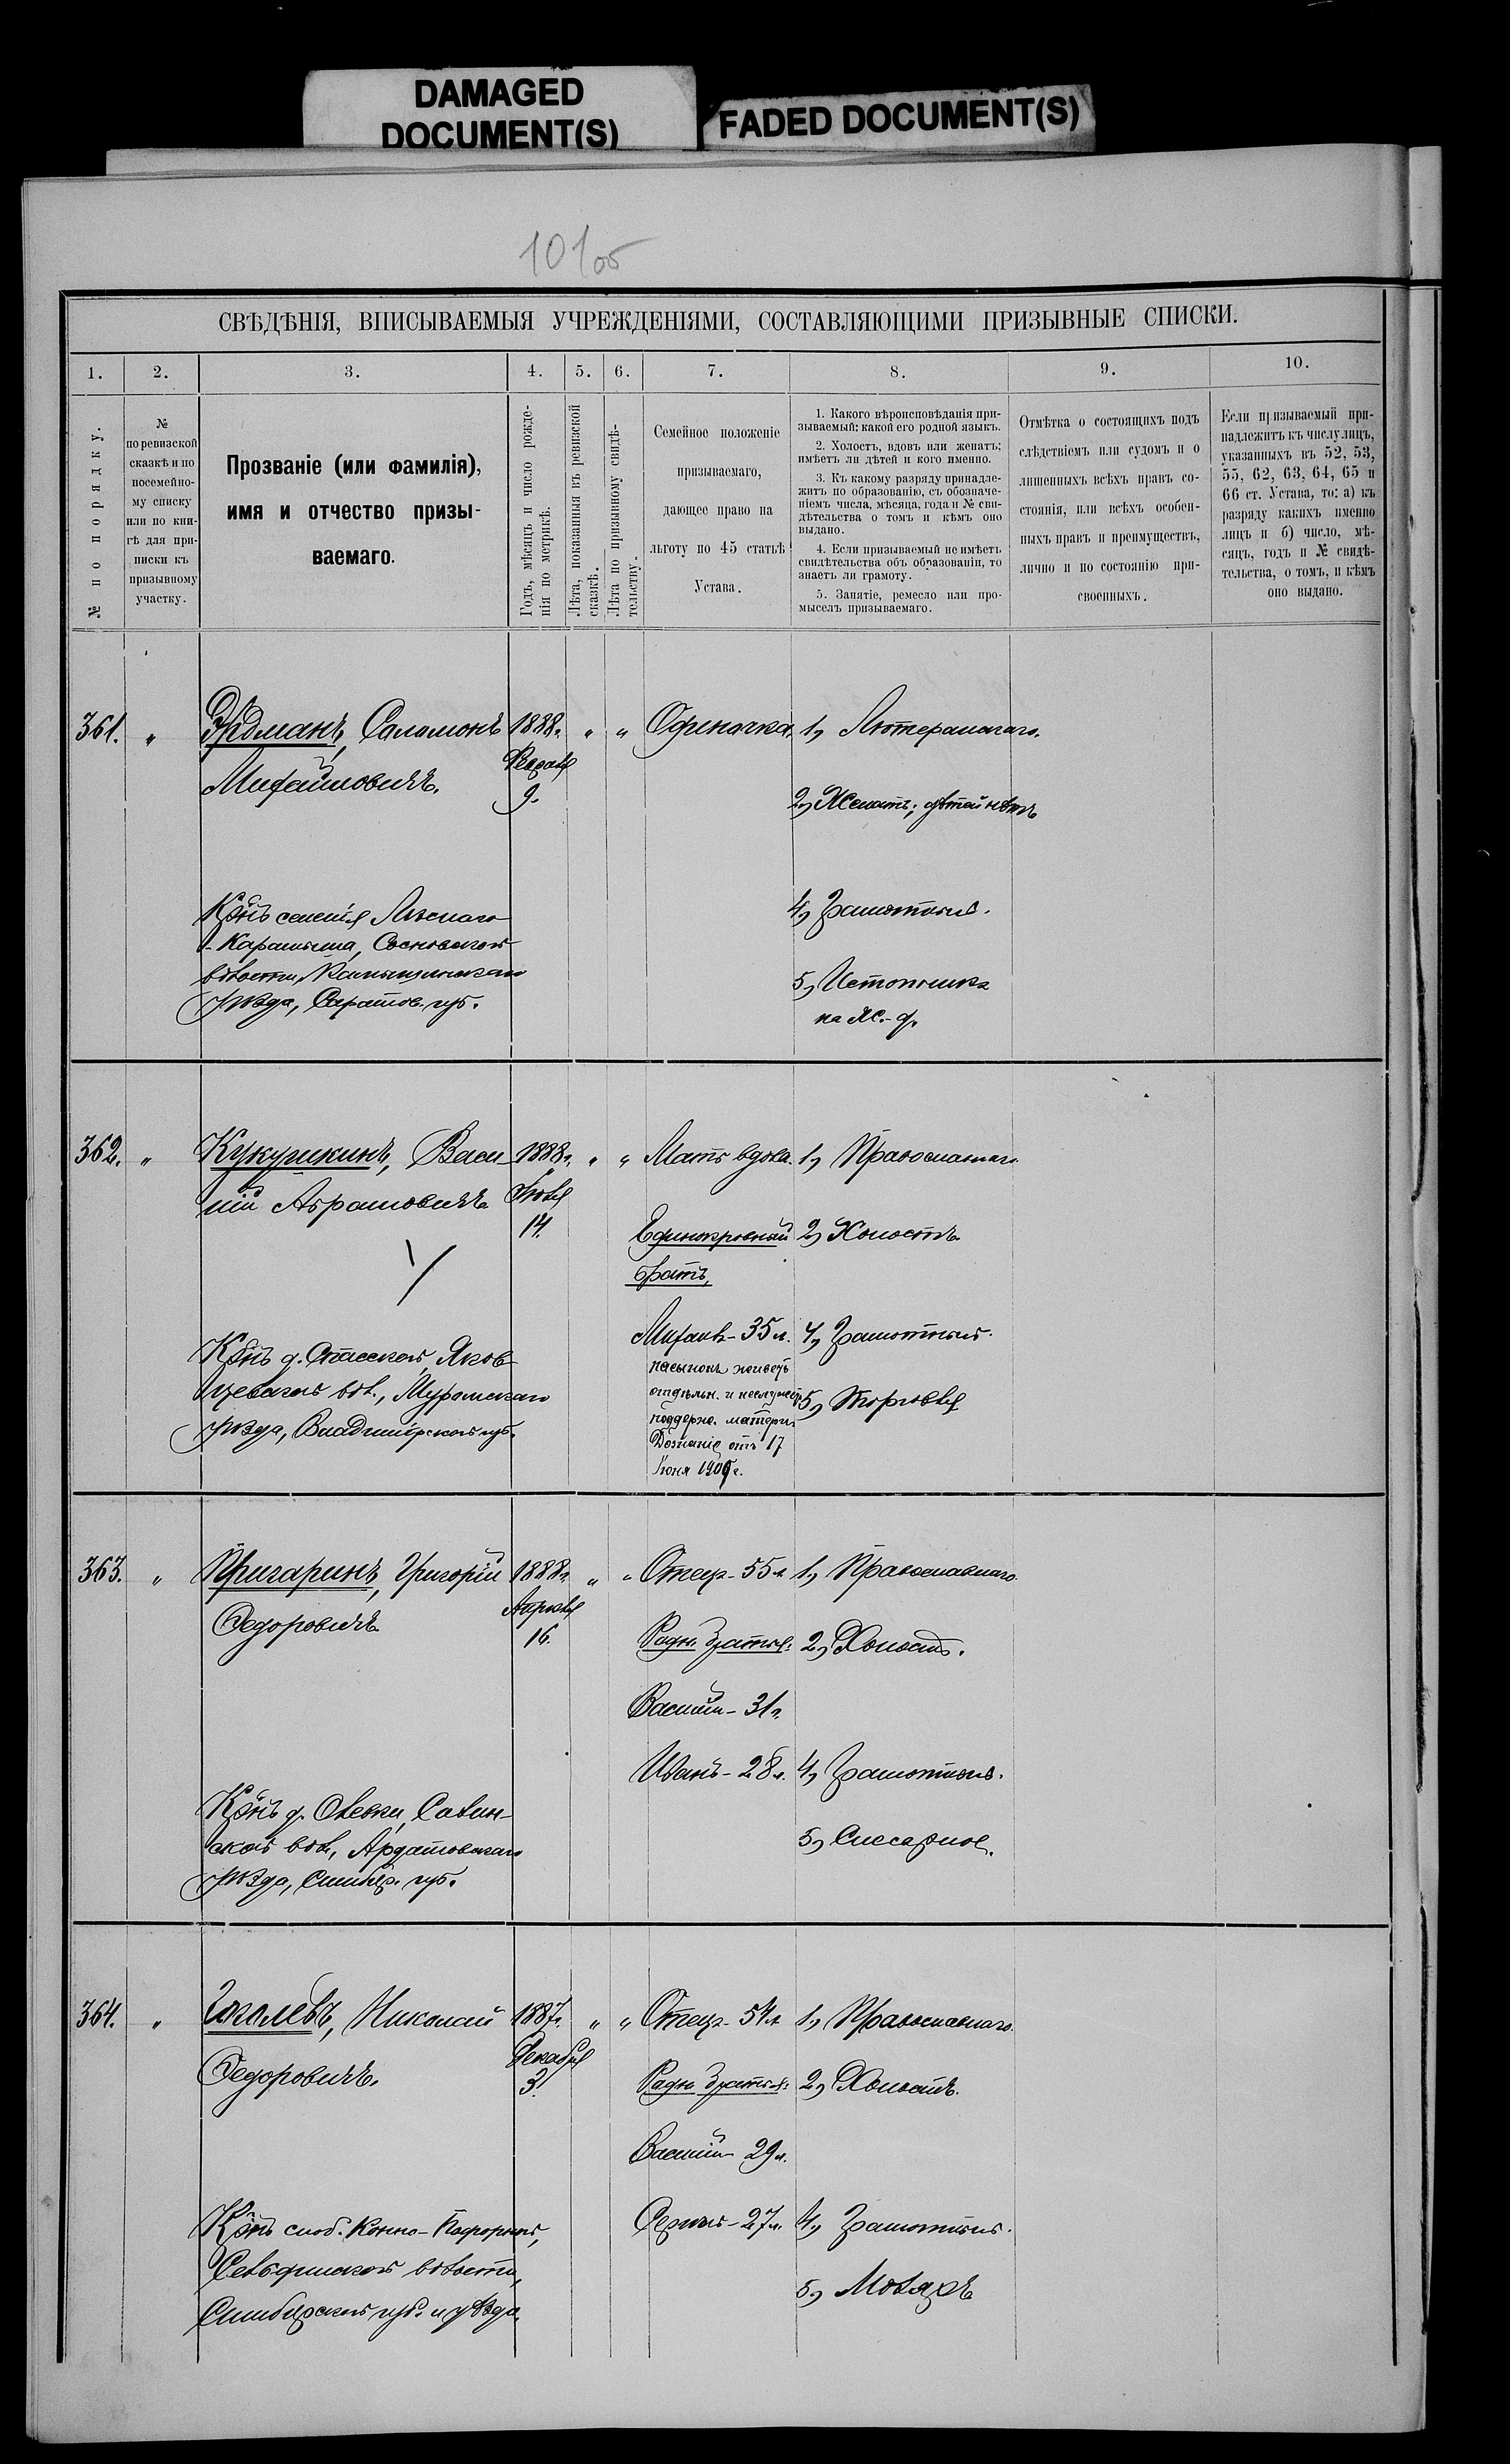 DAMAGED
DOCUMENT(S)
FADED DOCUMENT(S)
СВѢДѢНІЯ, ВПИСЫВАЕМЫЯ УЧРЕЖДЕНІЯМИ, СОСТАВЛЯЮЩИМИ ПРИЗЫВНЫЕ СПИСКИ.
1. 2. 3. 4. 5. 6. 7. 8. 9. 10.
№ по порядку.
№
по ревизской
сказкѣ и по
посемейно-
му списку
или по кни-
гѣ для при-
писки къ
призывному
участку.
Прозваніе (или фамилія),
имя и отчество призы-
ваемаго.
Годъ, мѣсяцъ и число рожде-
нія по метрикѣ.
Лѣта, показанныя въ ревизской
сказкѣ.
Лѣта по призывному свидѣ-
тельству.
Семейное положеніе
призываемаго,
дающее право на
льготу по 45 статьѣ
Устава.
1. Какого вѣроисповѣданія при-
зываемый; какой его родной языкъ.
2. Холостъ, вдовъ или женатъ;
имѣетъ ли дѣтей и кого именно.
3. Къ какому разряду принадле-
житъ по образованію, съ обозначе-
ніемъ числа, мѣсяца, года и № сви-
дѣтельства о томъ и кѣмъ оно
выдано.
4. Если призываемый не имѣетъ
свидѣтельства объ образованіи, то
знаетъ ли грамоту.
5. Занятіе, ремесло или про-
мыселъ призываемаго.
Отмѣтка о состоящихъ подъ
слѣдствіемъ или судомъ и о
лишенныхъ всѣхъ правъ со-
стоянія, или всѣхъ особен-
ныхъ правъ и преимуществъ,
лично и по состоянію при-
своенныхъ.
Если призываемый при-
надлежитъ къ числу лицъ,
указанныхъ въ 52, 53,
55, 62, 63, 64, 65 и
66 ст. Устава, то: а) къ
разряду какихъ именно
лицъ и б) число, мѣ-
сяцъ, годъ и № свидѣ-
тельства, о томъ, и кѣмъ
оно выдано.
361. " Эрдманъ, Саломонъ 1888г. " " Одиночка. 1) Лютеранскаго.
Михайловичъ.
9.
2) Женатъ; дѣтей нѣтъ
Кр-нъ селенія Лѣсного
Карамыша, Сосновской
волости, Камышинскаго
уѣзда, Саратов. губ.
4) Грамотный.
5) Истопникъ
на ж.-д.
362. " Кукушкинъ, Васи- 1888г. " " Мать вдова. 1) Православнаго
лій Абрамовичъ
14.
Единокровный 2) Холостъ
братъ,
Михаилъ - 35 л. 4) Грамотный.
пасынокъ живетъ
отдѣльн. и не служитъ
поддерж. матери.
Дознаніе отъ 17
Іюня 1909г.
5) Торговля
Кр-нъ д. Спасской, Яков-
цевской вол., Муромскаго
уѣзда, Владимірской губ.
363. " Пригаринъ, Григорій 1888г. " " Отецъ - 55 л. 1) Православнаго.
Федоровичъ
Апрѣля
16.
Родн. братья: 2) Холостъ.
Василій - 31 г.
Иванъ - 28 л. 4) Грамотный.
5) Слесарное.
Кр-нъ д. Олевки, Савин-
ской вол., Ардатовскаго
уѣзда, Симбир. губ.
364. " Гоголевъ, Николай 1887г. " " Отецъ - 54 л. 1) Православнаго.
Федоровичъ.
Декабря
3.
Родн. братья: 2) Холостъ.
Василій - 29 л.
Сергѣй - 27 л. 4) Грамотный.
5) Моляръ
Кр-нъ слоб. Конно-Подгорной,
волости,
Симбирской губ. и уѣзда.